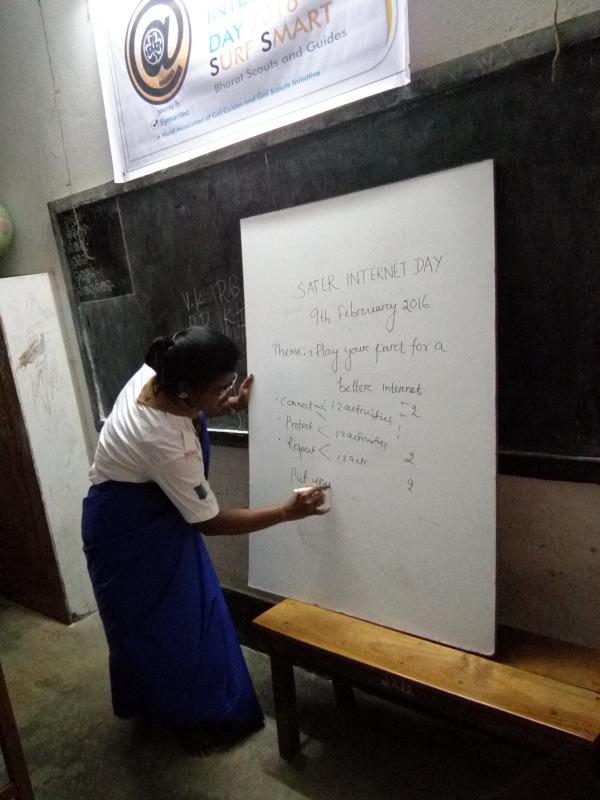 INTER
DAY 2016
SURF SMART
Bharat Scouts and Guides
powered by
Symantec
a World Association of Girl Guides and Girl Scouts Initiative
SAFER INTERNET DAY
9th February 2016
Theme:- Play your part for a
better internet
Connect 12 activities 2
Protect 12 activities 1
Respect 12 acts 2
Put you 2